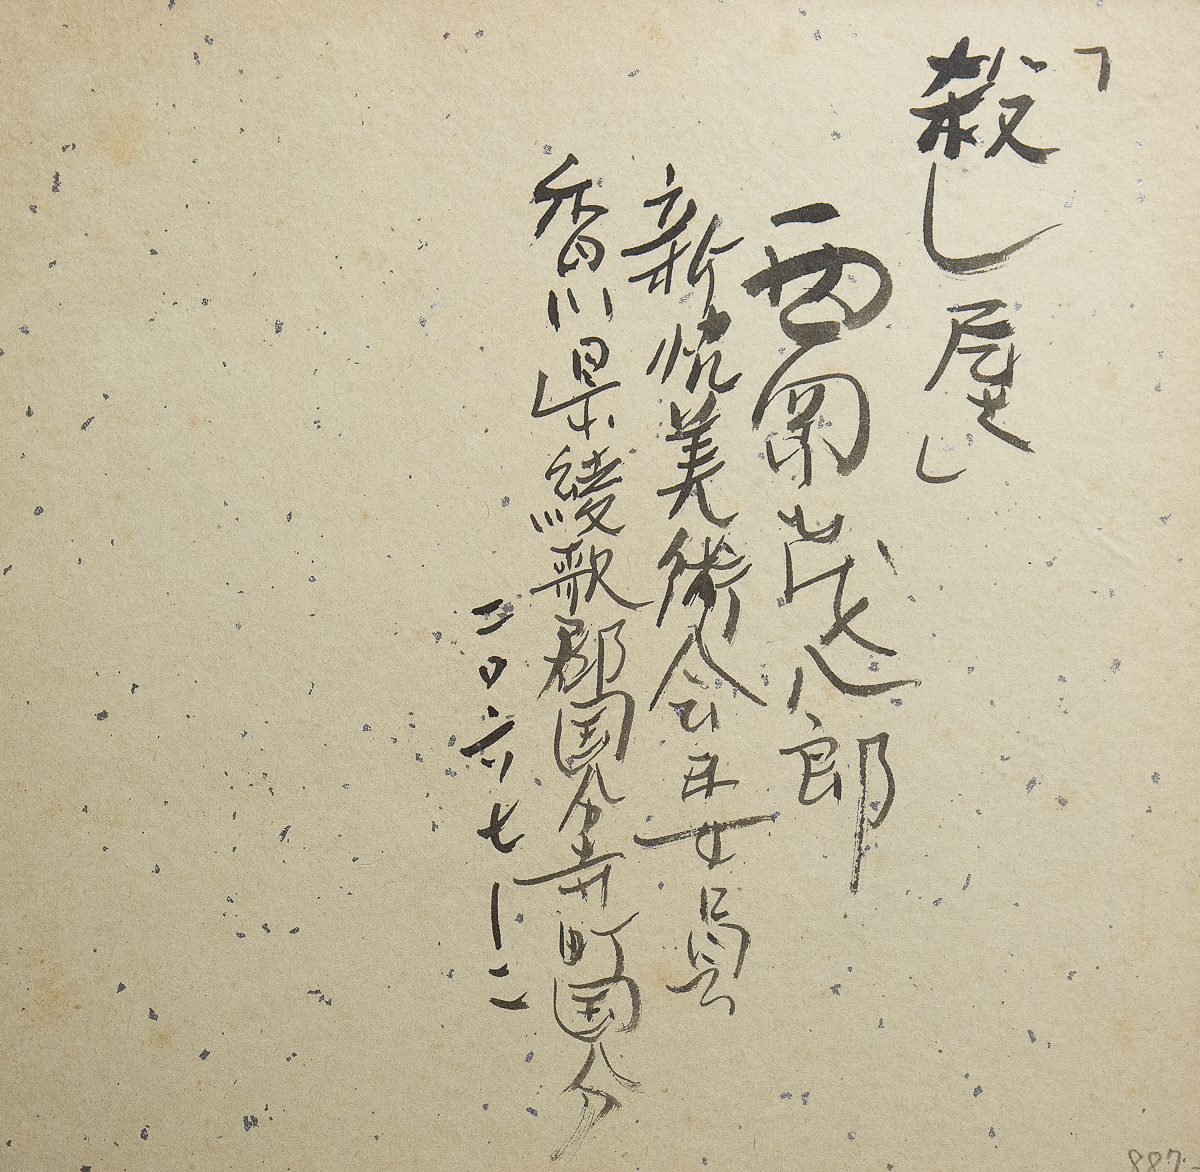 「殺し屋」
西岡茂八郎
新院美術会委員
香川県綾歌郡国分寺町国分
二〇六七ー二
887